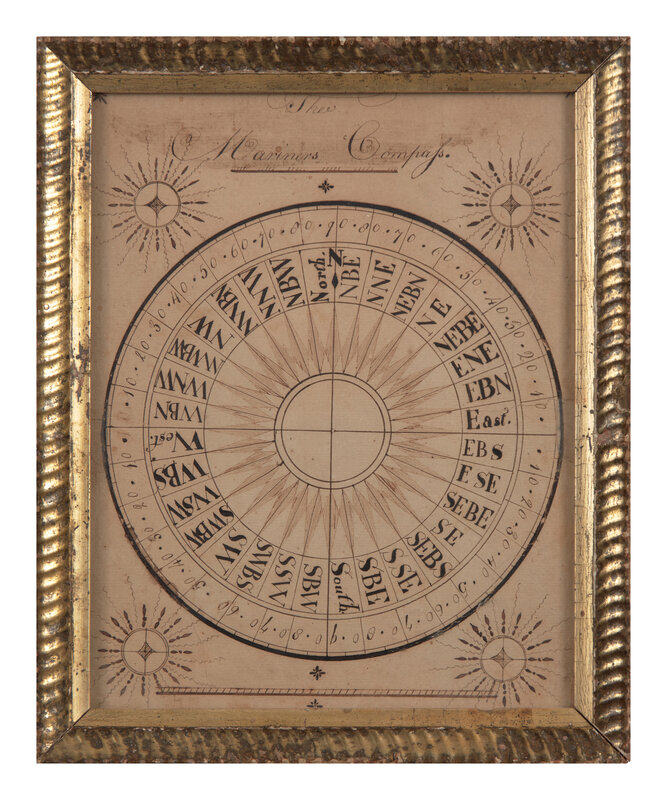 Thee
Mariners Compaſs.
90 80 70 60 50 40 30 20 10
10 20 30 40 50 60 70 80 90
80 70 60 50 40 30 20 10
10 20 30 40 50 60 70 80
N
North
NBE
NNE
NEBN
NE
NEBE
ENE
EBN
East.
EBS
ESE
SEBE
SE
SEBS
SSE
SBE
South
SBW
SSW
SWBS
SW
SWBW
WSW
WBS
West.
WBN
WNW
NWBW
NW
NWBN
NNW
NBW